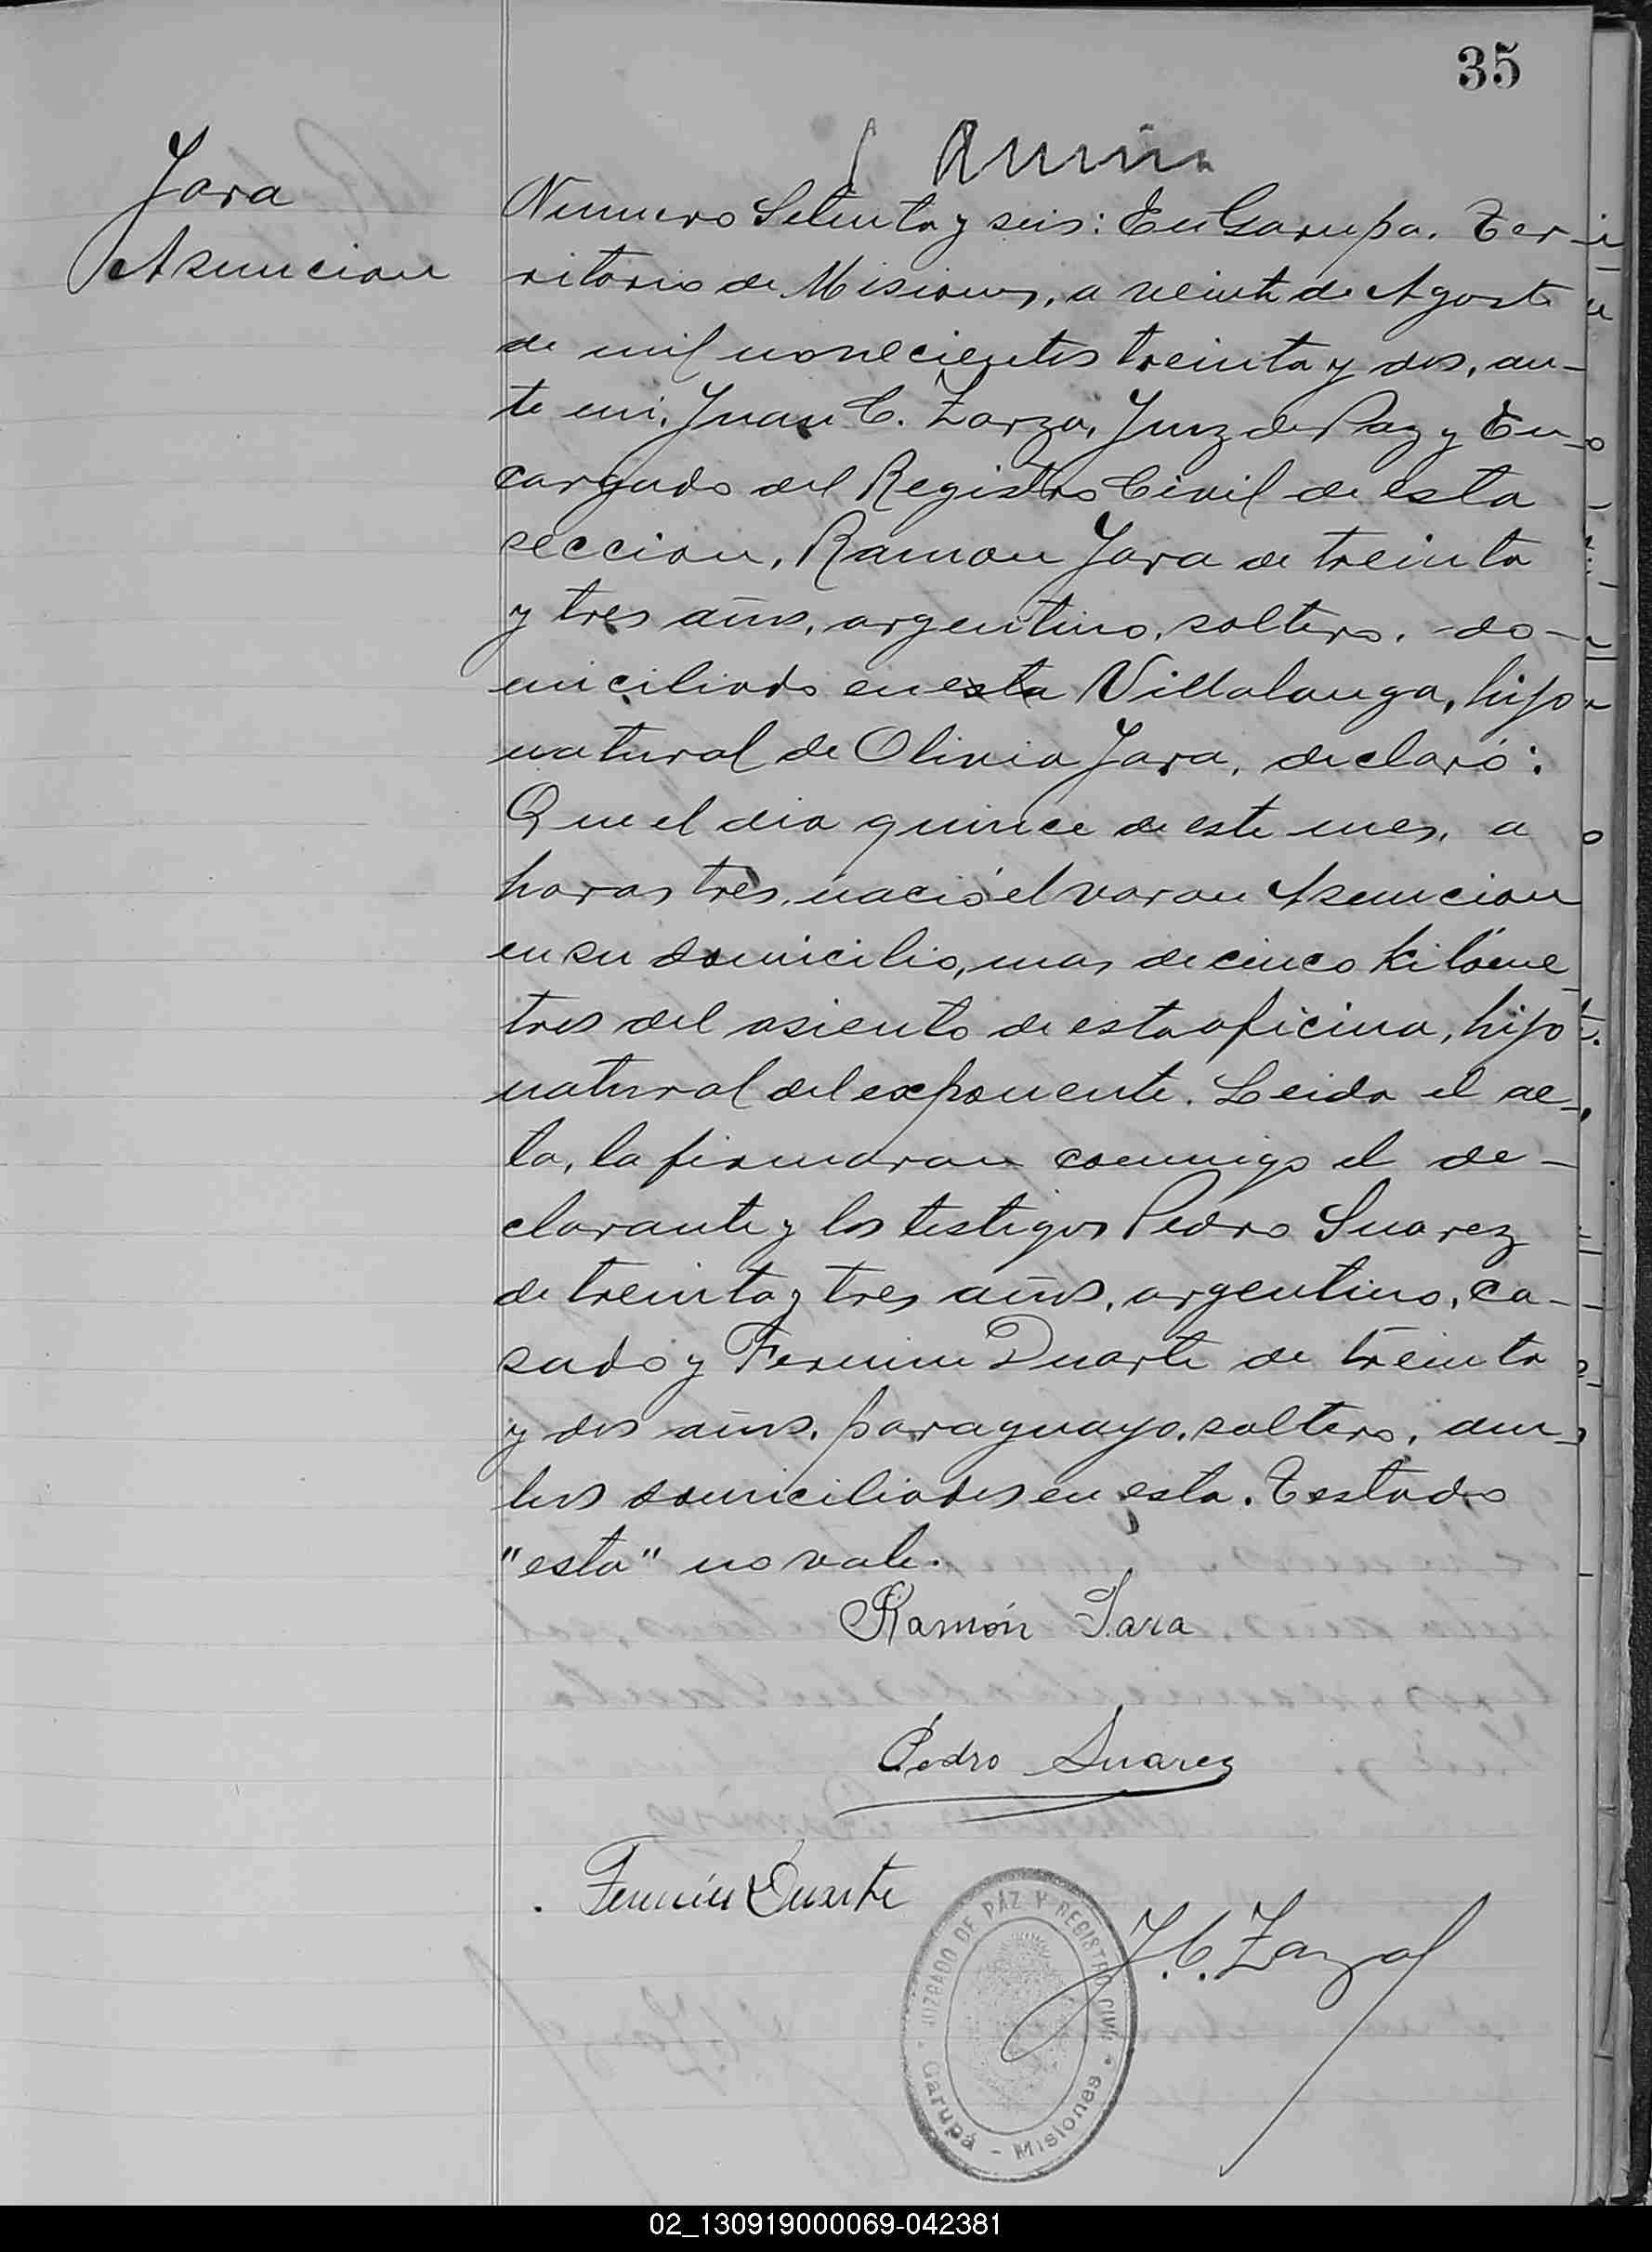 35
Jara
Asuncion
Numero Setenta y seis: En Garupa. Ter-
ritorio de Misiones, a veinte de Agosto
de mil novecientos treinta y dos, an-
te mi, Juan C. Zarza, Juez de Paz y En-
cargado del Registro Civil de esta
seccion, Ramon Jara de treinta
y tres años, argentino, soltero, do-
miciliado en esta Villalonga, hijo
natural de Olivia Jara, declaró:
Que el dia quince de este mes, a
horas tres, nació el varon Asuncion
en su domicilio, mas de cinco kilóme-
tros del asiento de esta oficina, hijo
natural del exponente. Leida el ac-
ta, la firmaron conmigo el de-
clarante y los testigos Pedro Suarez
de treinta y tres años, argentino, ca-
sado y Fermin Duarte de treinta
y dos años, paraguayo, soltero, am-
bos domiciliados en esta. Testado
"esta" no vale.
Ramón Jara
Pedro Suarez
Fermín Duarte
J. C. Zarza
JUZGADO DE PAZ Y REGISTRO CIVIL
Garupá - Misiones
02_130919000069-042381